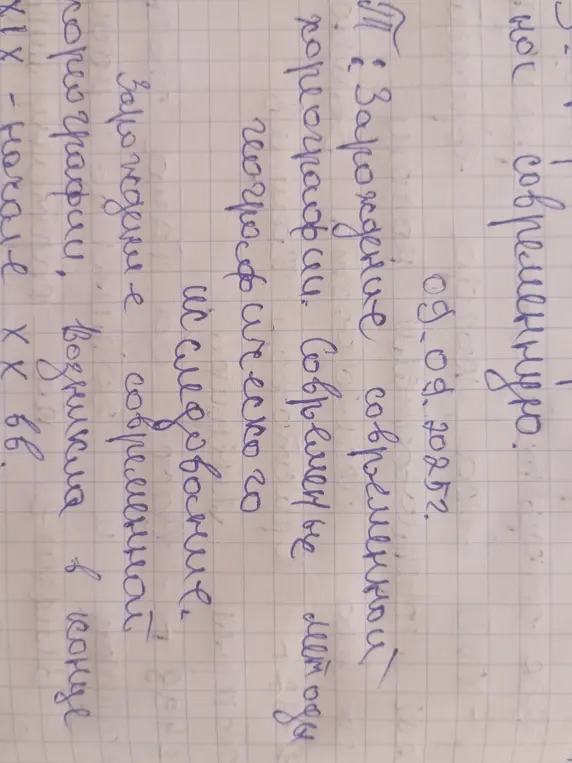 ное современную.
09.09.2025г.
Т: Зарождение современной
хореографии. Современые методы
географического
исследование.
Зарождение современной
хореографии, возникла в конце
XIX - начале XX вв.